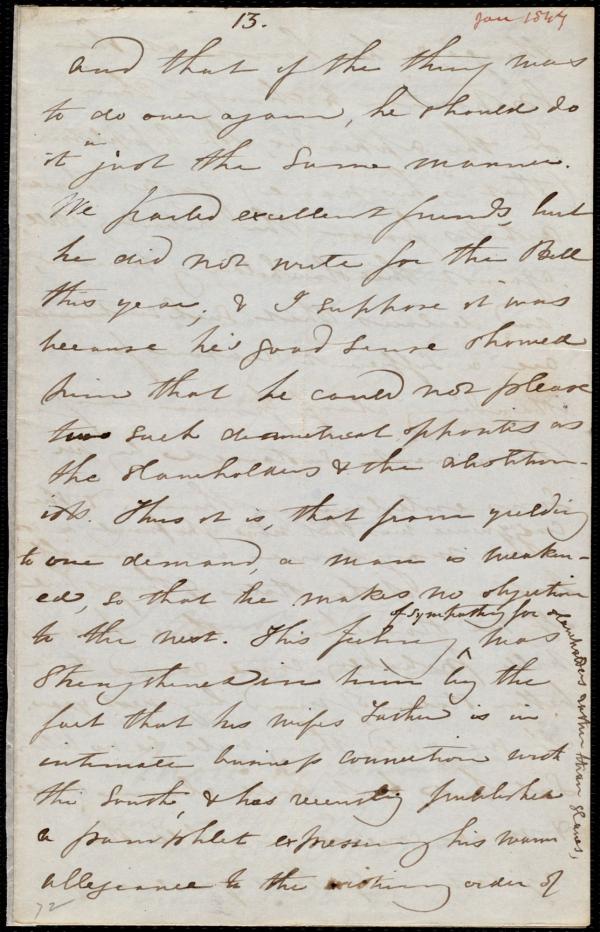 13.
Jan 1847
and that if the thing was
to do over again, he should do
it in just the same manner.
We parted excellent friends, but
he did not write for the Bell
this year; & I suppose it was
because his good sense showed
him that he could not please
two such diametrical opposites as
the slaveholders & the abolition-
ists. Thus it is, that from yielding
to one demand, a man is weaken-
ed, so that he makes no objection
to the next. This feeling of sympathy for slaveholders rather than slaves, was
strengthened in him by the
fact that his wifes Father is in
intimate business connection with
the South, & has recently published
a pamphlet expressing his warm
allegiance to the existing order of
72